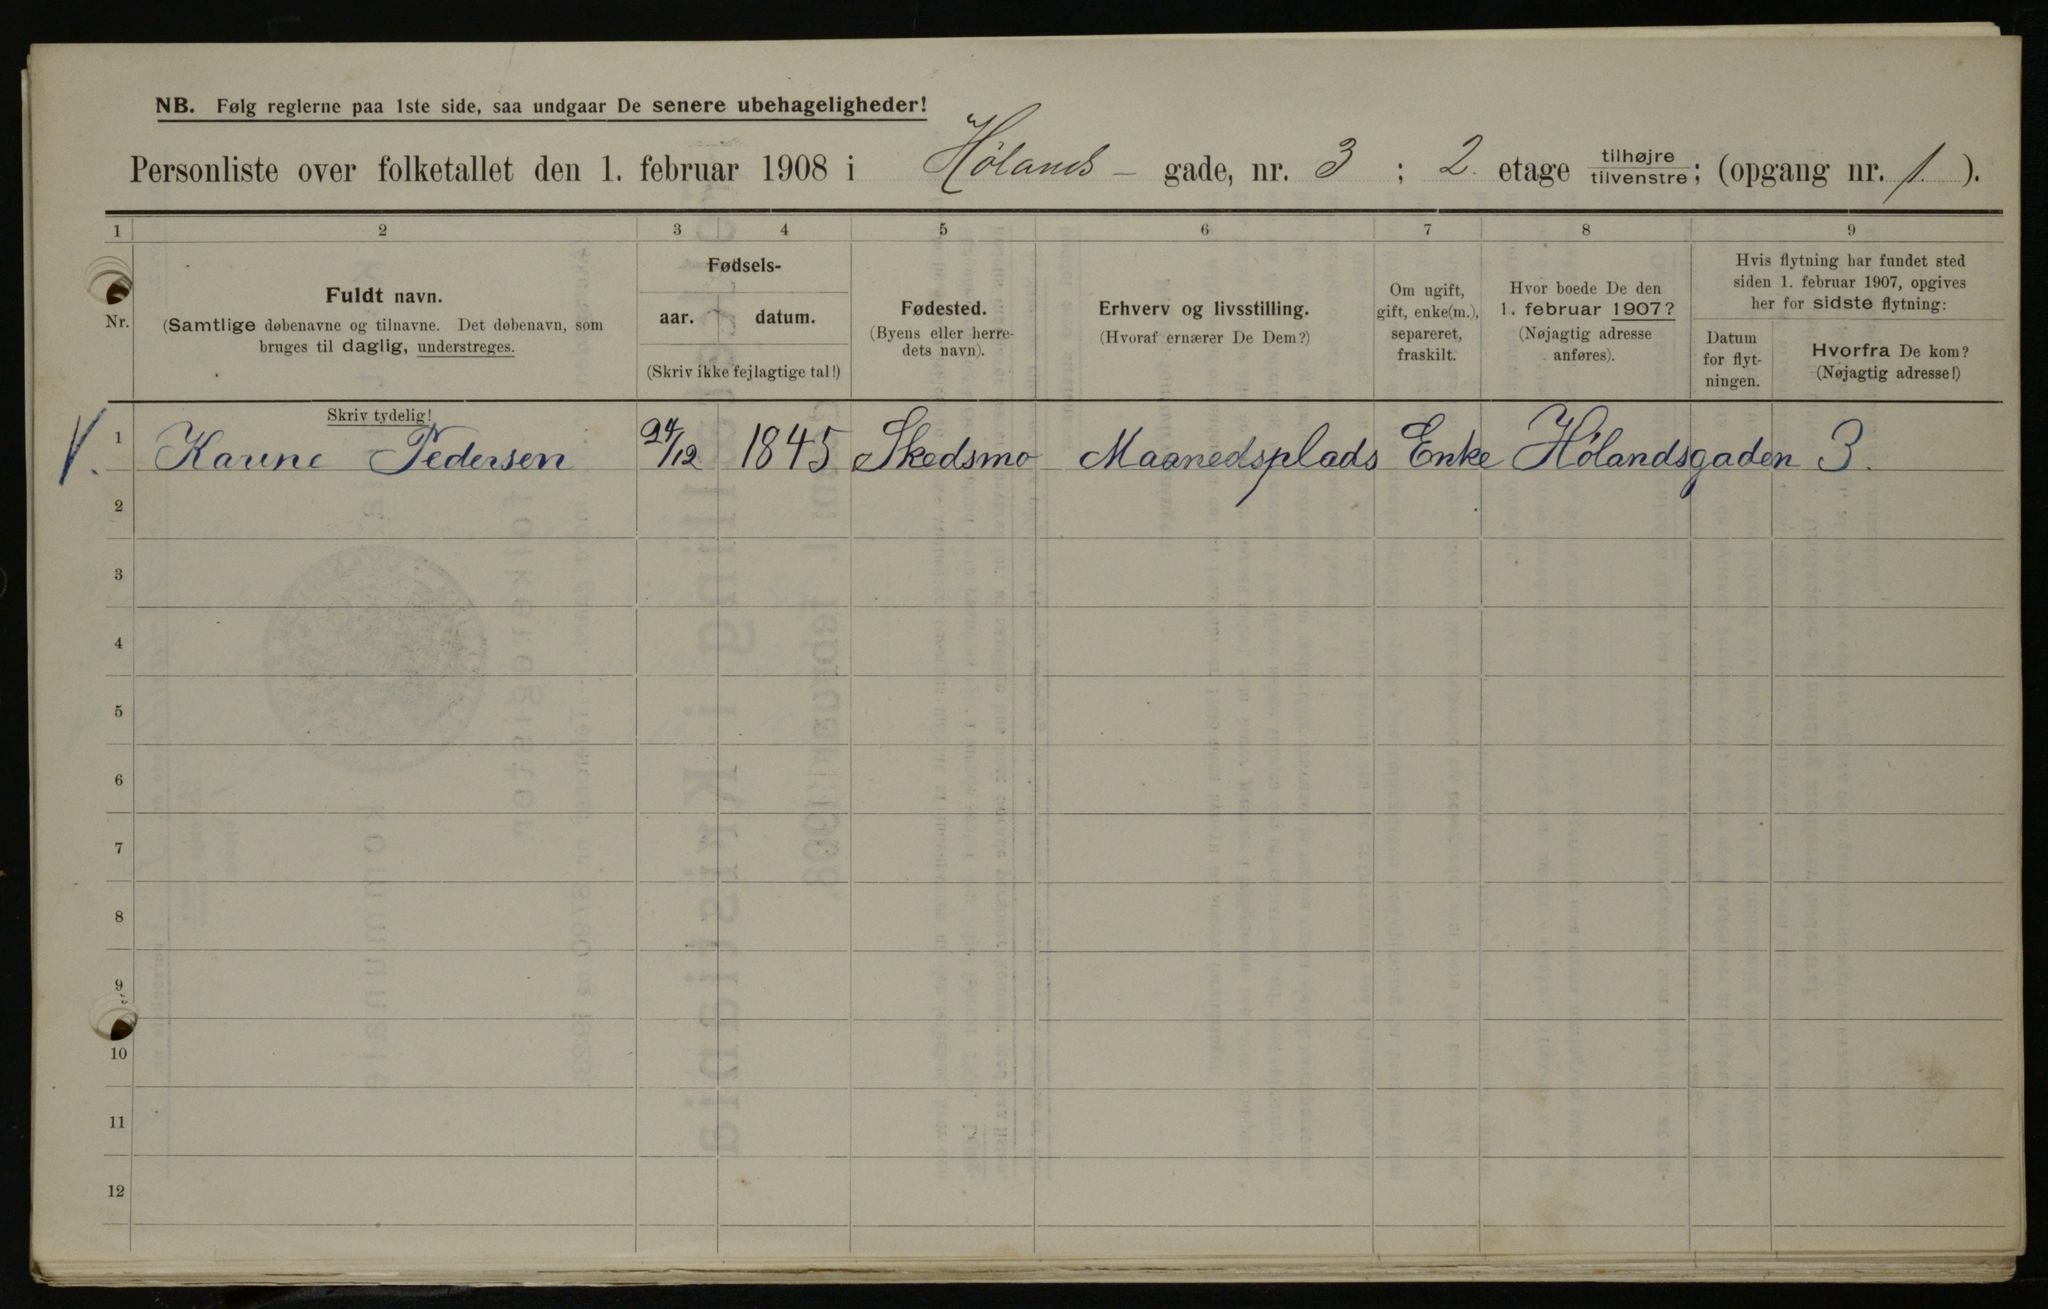 NB. Følg reglerne paa 1ste side, saa undgaar De senere ubehageligheder!
Personliste over folketallet den 1. februar 1908 i Hølands - gade, nr. 3 ; 2 etage tilhøjre tilvenstre; (opgang nr. 1 ).
1 2 3 4 5 6 7 8 9
Nr.
Fuldt navn.
(Samtlige døbenavne og tilnavne. Det døbenavn, som
bruges til daglig, understreges.
Fødsels-
aar. datum.
(Skriv ikke fejlagtige tal!)
Fødested.
(Byens eller herre-
dets navn).
Erhverv og livsstilling.
(Hvoraf ernærer De Dem?)
Om ugift,
gift, enke(m.),
separeret,
fraskilt.
Hvor boede De den
1. februar 1907?
(Nøjagtig adresse
anføres).
Hvis flytning har fundet sted
siden 1. februar 1907, opgives
her for sidste flytning:
Datum
for flyt-
ningen.
Hvorfra De kom?
(Nøjagtig adresse!)
Skriv tydelig!
V. 1 Karine Pedersen 24/12 1845 Skedsmo Maanedsplads Enke Hølandsgaden 3.
2
3
4
5
6
7
8
9
10
11
12